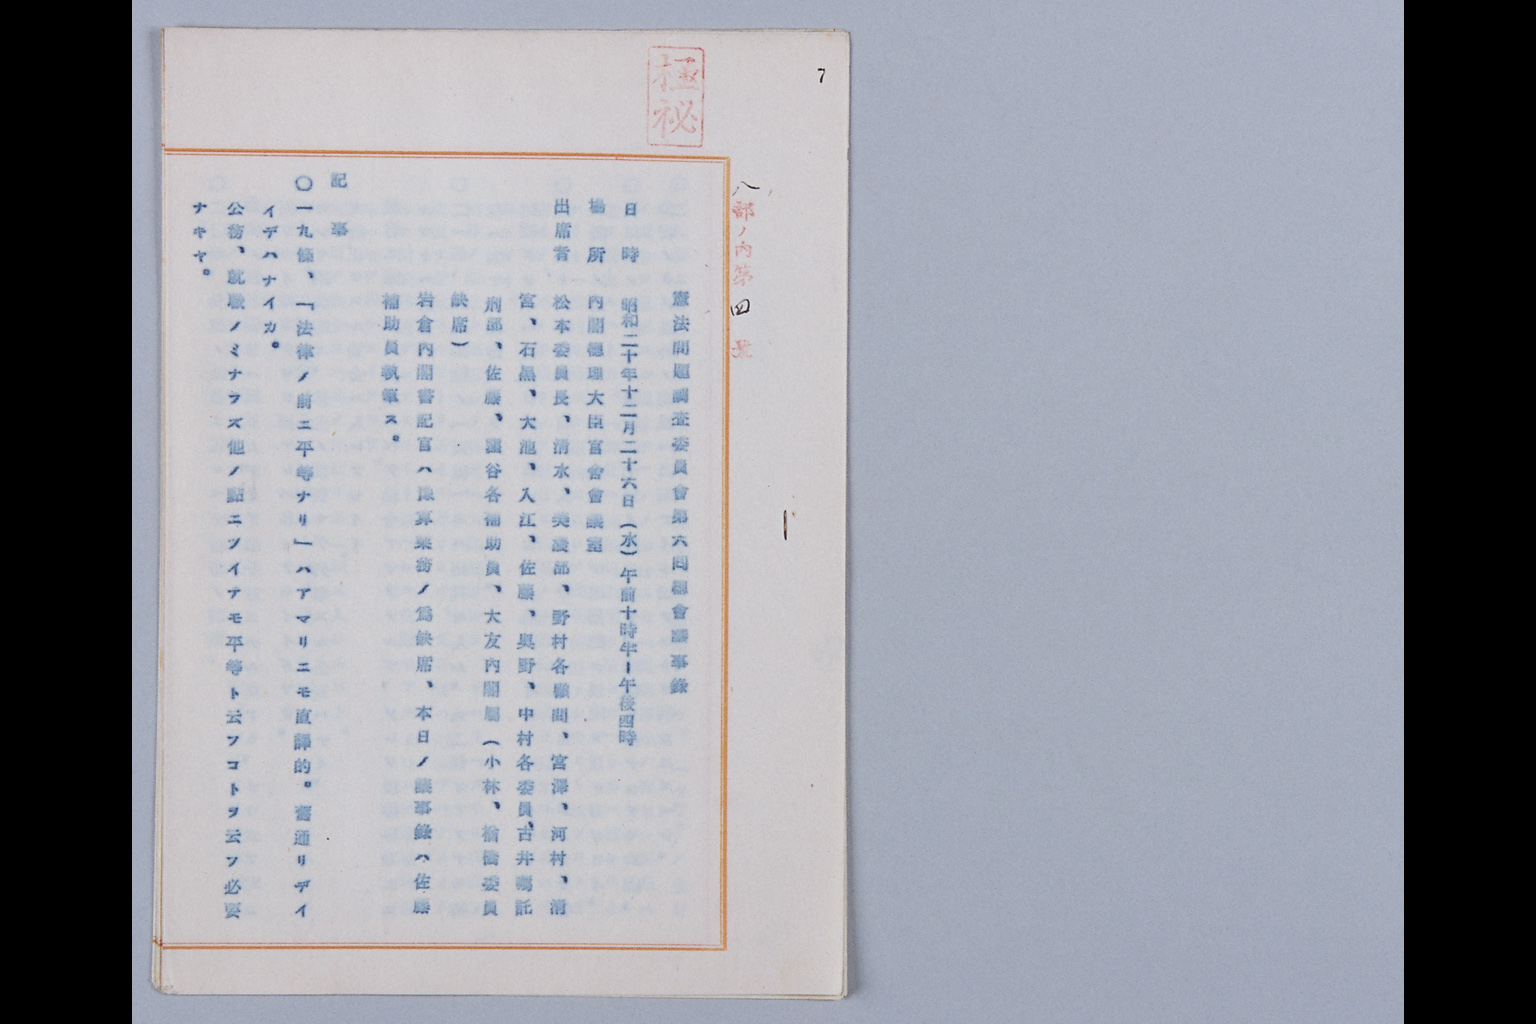 7
極秘
八部ノ内第四號
憲法問題調査委員會第六回總會議事錄
日時 昭和二十年十二月二十六日(水)午前十時半―午後四時
場所 內閣總理大臣官舍會議室
出席者 松本委員長、淸水、美濃部、野村各顧問、宮澤、河村、淸
宮、石黑、大池、入江、佐藤、奧野、中村各委員、古井囑託
刑部、佐藤、窪谷各補助員、大友內閣屬(小林、楢橋委員
缺席)
岩倉內閣書記官ハ豫算事務ノ爲缺席、本日ノ議事錄ハ佐藤
補助員執筆ス。
記事
〇一九條、「法律ノ前ニ平等ナリ」ハアマリニモ直譯的。舊通リデイ
イデハナイカ。
公務、就職ノミナラズ他ノ點ニツイテモ平等ト云フコトヲ云フ必要
ナキヤ。